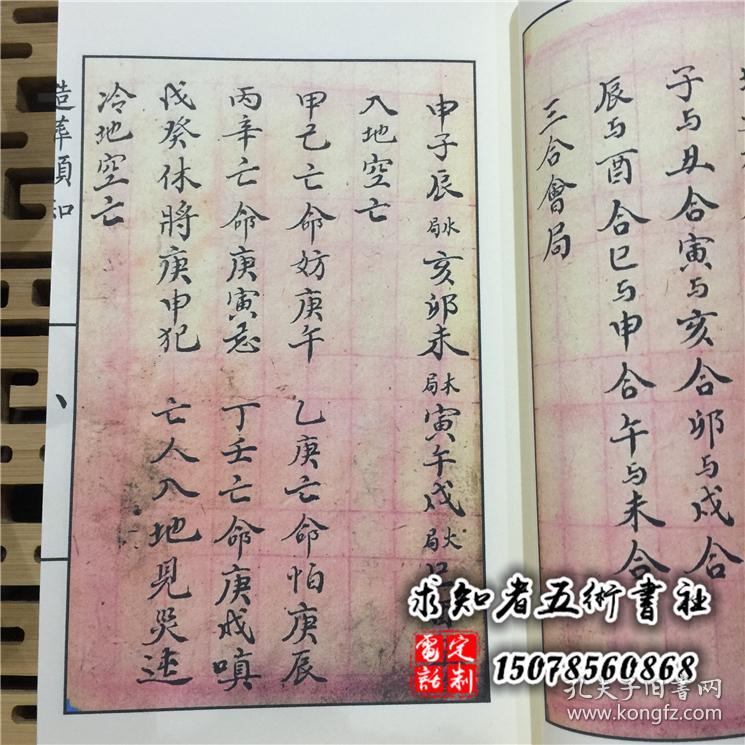 子与丑合寅与亥合卯与戌合
辰与酉合巳与申合午与未合
三合會局
申子辰水局亥卯未木局寅午戌火局
入地空亡
甲己亡命妨庚午 乙庚亡命怕庚辰
丙辛亡命庚寅忌 丁壬亡命庚戌嗔
戊癸休將庚申犯 亡人入地見哭連
冷地空亡
造葬須知
求知者五術書社
電話定制
15078560868
孔夫子旧書网
www.kongfz.com